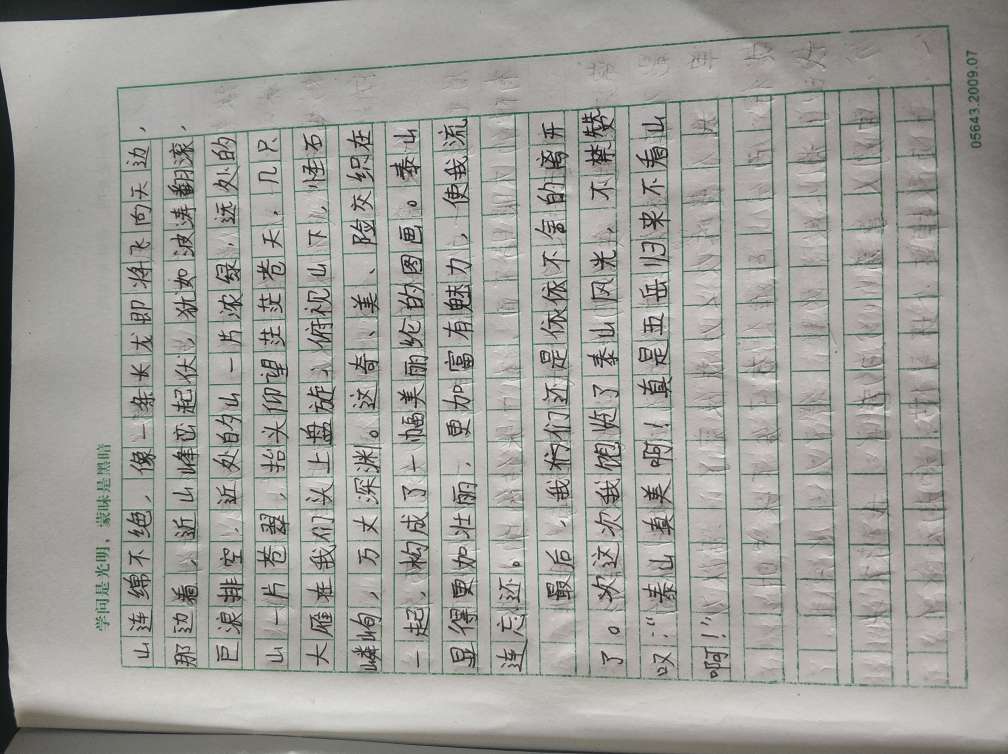 学问是光明，蒙昧是黑暗
山连绵不绝，像一条长龙即将飞向天边，
那边看，近山峰峦起伏，犹如波涛翻滚，
巨浪排空，近处的山一片浓绿，远处的
山一片苍翠，抬头仰望茫茫苍天，几只
大雁在我们头上盘旋，俯视山下，怪石
嶙峋，万丈深渊。这奇、美、险交织在
一起，构成了一幅美丽绝伦的图画。泰山
显得更加壮丽，更加富有魅力，使我流
连忘还。
最后，我们们还是依依不舍的离开
了。次这次我饱览了泰山风光，不禁赞
叹：“泰山真美啊！真是五岳归来不看山
啊！”
05643.2009.07